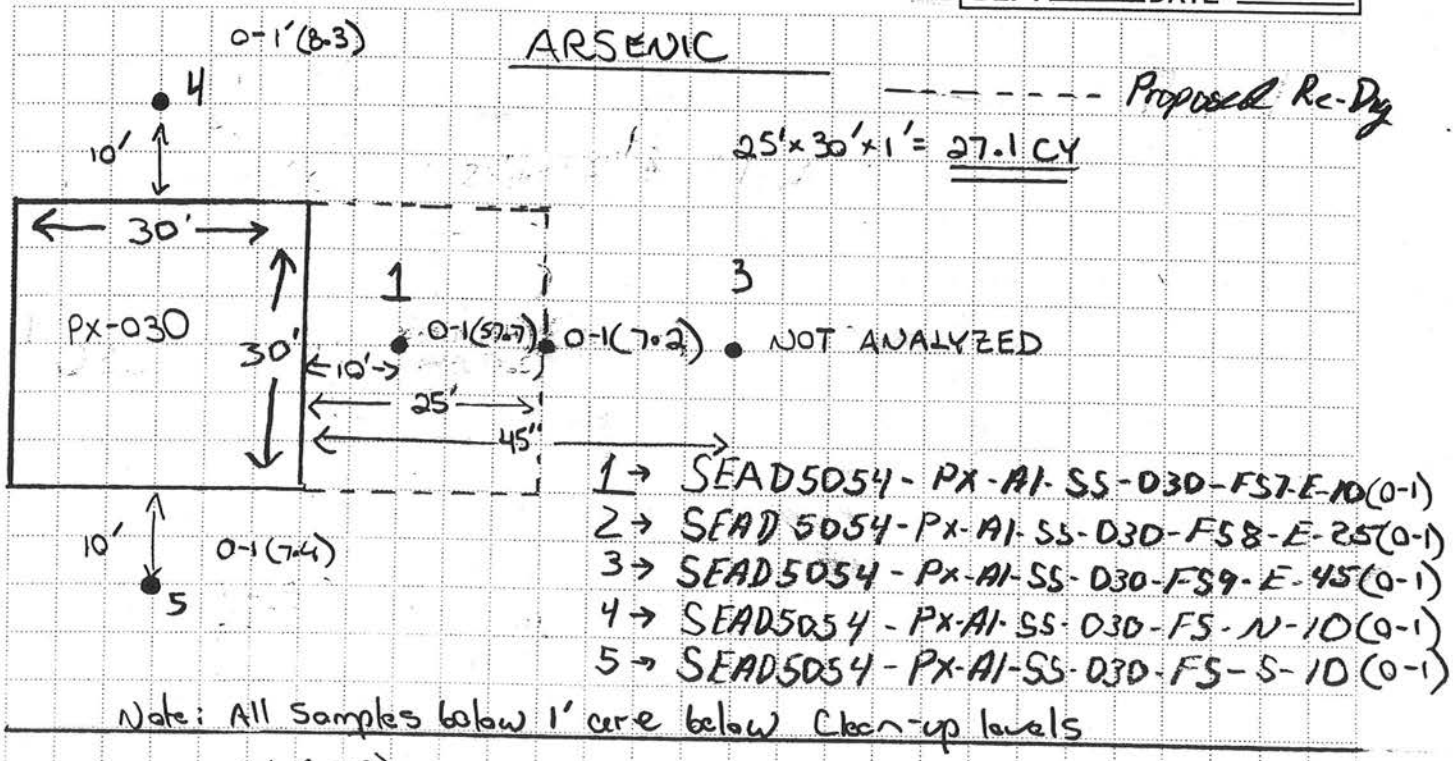 DATE
0-1'(8.3)
ARSENIC
4
Proposed Re-Dig
10'
25'x30'x1'= 27.1 CY
30'
1
3
PX-030
30'
0-1(57.7)
0-1(7.2)
NOT ANALYZED
10'
25'
45'
1→ SEAD5054-PX-A1-SS-030-FS7-E-10(0-1)
2→ SEAD5054-PX-A1-SS-030-FS8-E-25(0-1)
10'
0-1(7.4)
3→ SEAD5054-PX-A1-SS-030-FS9-E-45(0-1)
5
4→ SEAD5054-PX-A1-SS-030-FS-N-10(0-1)
5→ SEAD5054-PX-A1-SS-030-FS-S-10(0-1)
Note: All Samples below 1' are below Clean-up levels